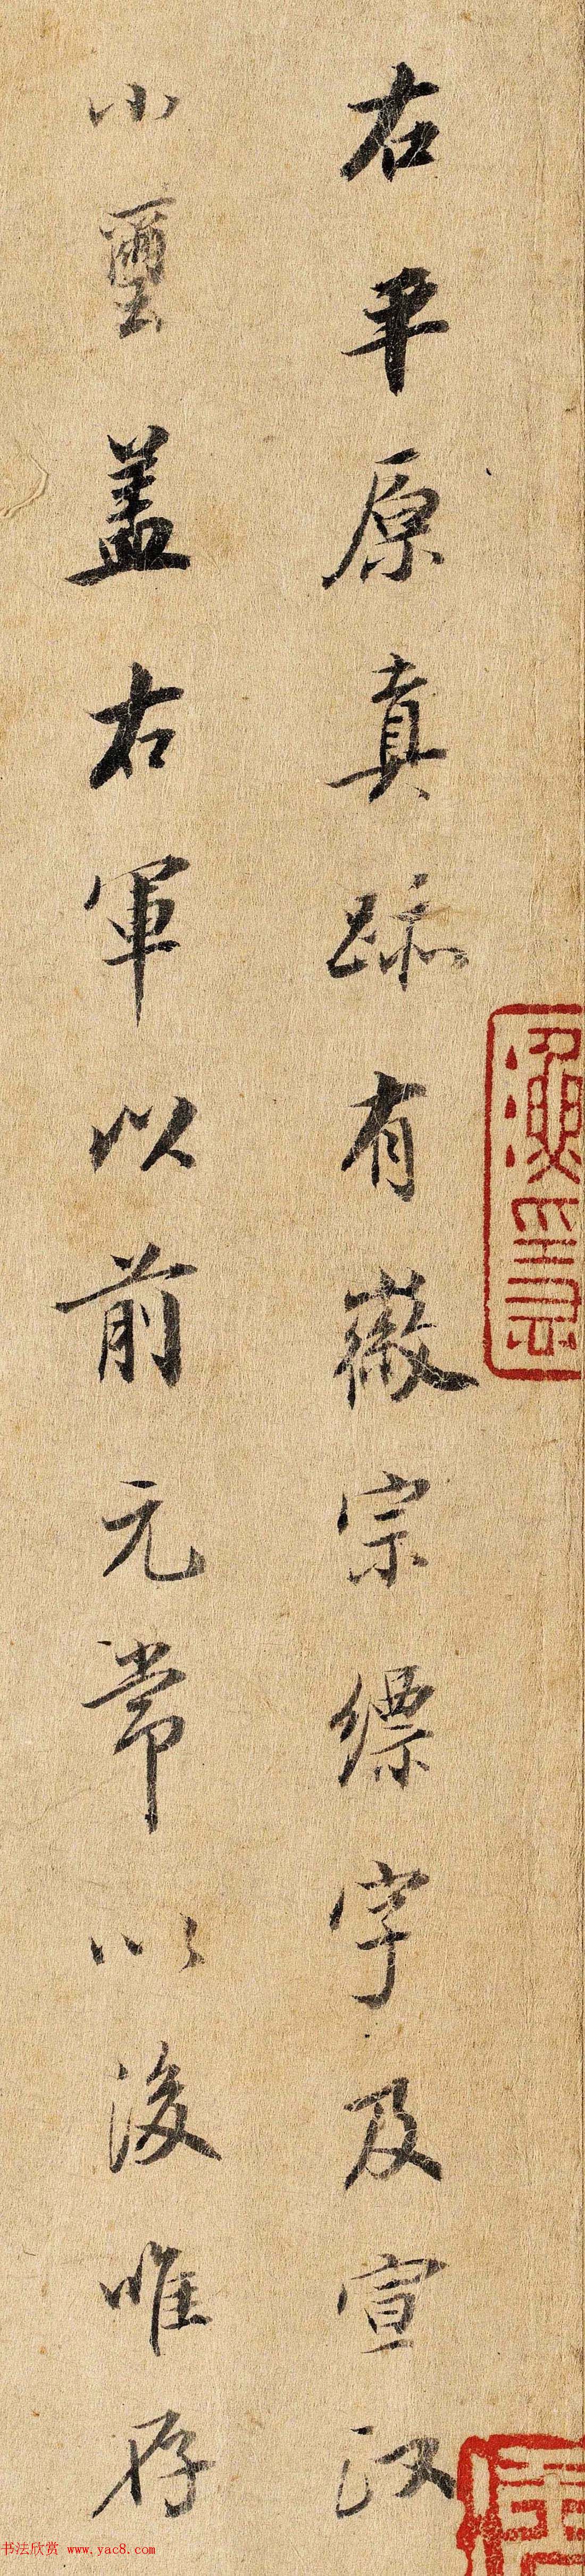 右平原真跡有徽宗縹字及宣政
小璽盖右軍以前元常以後唯存
书法欣赏 www.yac8.com